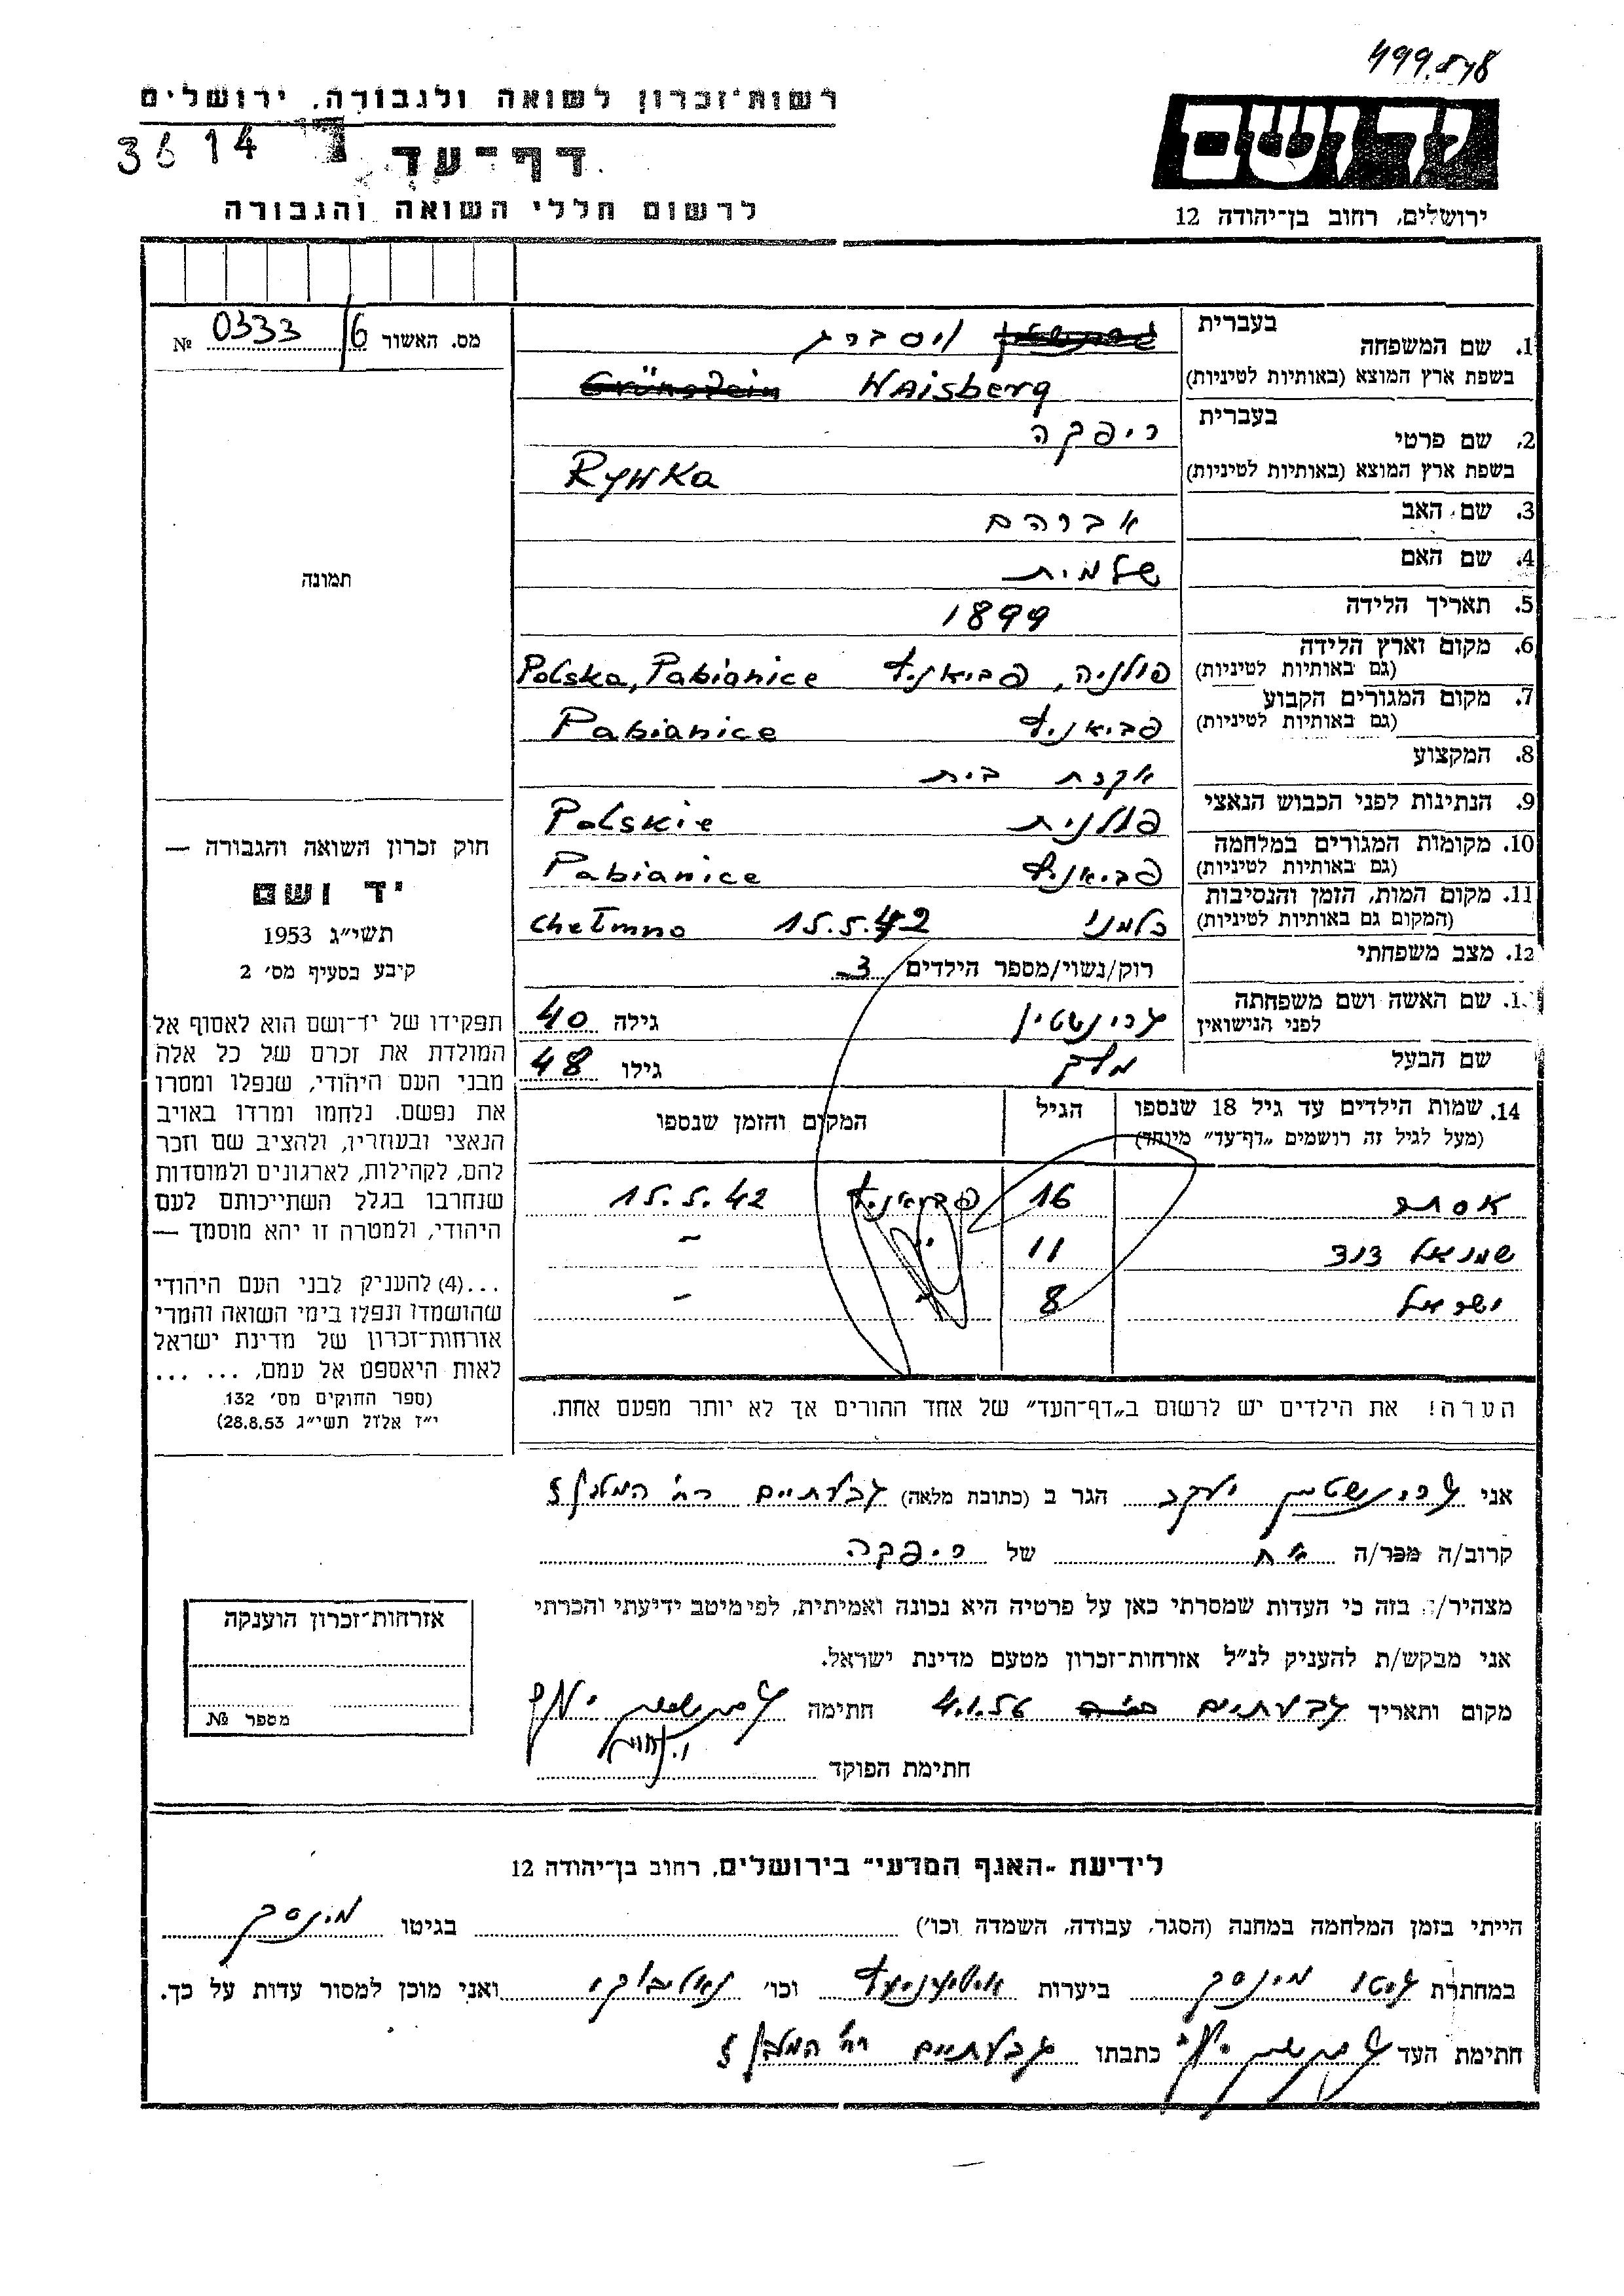 499.578
רשות־זכרון לשואה ולגבורה, ירושלים
3614
דף־עד
לרשום חללי השואה והגבורה
יד ושם
ירושלים, רחוב בן־יהודה 12
מס. האשור 0333/6 №
תמונה
חוק זכרון השואה והגבורה —
יד ושם
תשי״ג 1953
קיבע בסעיף מס׳ 2
תפקידו של יד־ושם הוא לאסוף אל
המולדת את זכרם של כל אלה
מבני העם היהודי, שנפלו ומסרו
את נפשם. נלחמו ומרדו באויב
הנאצי ובעוזריו, ולהציב שם וזכר
להם, לקהילות, לארגונים ולמוסדות
שנחרבו בגלל השתייכותם לעם
היהודי, ולמטרה זו יהא מוסמך —
...(4) להעניק לבני העם היהודי
שהושמדו ונפלו בימי השואה והמרי
אזרחות־זכרון של מדינת ישראל
לאות היאספם אל עמם, ... ...
(ספר החוקים מס׳ 132
י״ז אלול תשי״ג 28.8.53)
בעברית
1. שם המשפחה ויסברג
בשפת ארץ המוצא (באותיות לטיניות) Waisberg Grünstein
בעברית
2. שם פרטי ריפקה
בשפת ארץ המוצא (באותיות לטיניות) Rywka
3. שם האב אברהם
4. שם האם שלמית
5. תאריך הלידה 1899
6. מקום וארץ הלידה
(גם באותיות לטיניות) פולניה, פביאניץ Polska, Pabianice
7. מקום המגורים הקבוע
(גם באותיות לטיניות) פביאניץ Pabianice
8. המקצוע עקרת בית
9. הנתינות לפני הכבוש הנאצי פולנית Polskie
10. מקומות המגורים במלחמה
(גם באותיות לטיניות) פביאניץ Pabianice
11. מקום המות, הזמן והנסיבות
(המקום גם באותיות לטיניות) כלמנו 15.5.42 Chełmno
12. מצב משפחתי רוק/נשוי/מספר הילדים 3
1. שם האשה ושם משפחתה
לפני הנישואין גרינשטין גילה 40
שם הבעל מלך גילו 48
14. שמות הילדים עד גיל 18 שנספו הגיל המקום והזמן שנספו
(מעל לגיל זה רושמים „דף־עד״ מיוחד)
אסתר 16 פביאניץ 15.5.42
שמואל דוד 11 ״ –
ישראל 8 ״ –
הערה! את הילדים יש לרשום ב„דף־העד״ של אחד ההורים אך לא יותר מפעם אחת.
אני גרינשטין יעקב הגר ב (כתובת מלאה) גבעתיים רח׳
קרוב/ה מכר/ה אח של ריפקה
מצהיר/ה בזה כי העדות שמסרתי כאן על פרטיה היא נכונה ואמיתית, לפי מיטב ידיעתי והכרתי
אני מבקש/ת להעניק לנ״ל אזרחות־זכרון מטעם מדינת ישראל.
מקום ותאריך גבעתיים 4.1.56 חתימה גרינשטין
חתימת הפוקד
אזרחות־זכרון הוענקה
מספר №
לידיעת „האגף המדעי״ בירושלים, רחוב בן־יהודה 12
הייתי בזמן המלחמה במחנה (הסגר, עבודה, השמדה וכו׳) בגיטו מינסק
במחתרת גיטו מינסק ביערות וכו׳ נאליבוקי ואני מוכן למסור עדות על כך.
חתימת העד גרינשטין כתבתו גבעתיים רח׳